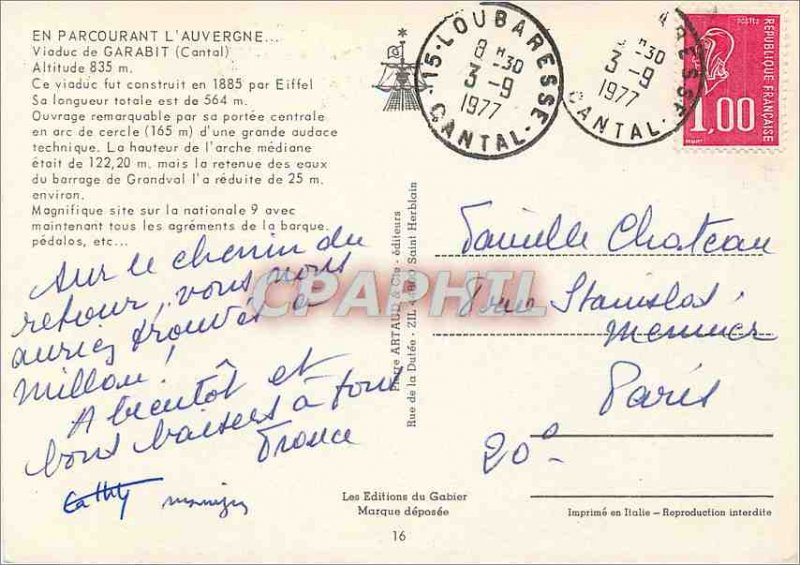 EN PARCOURANT L'AUVERGNE...
Viaduc de GARABIT (Cantal)
Altitude 835 m.
Ce viaduc fut construit en 1885 par Eiffel
Sa longueur totale est de 564 m.
Ouvrage remarquable par sa portée centrale
en arc de cercle (165 m) d'une grande audace
technique. La hauteur de l'arche médiane
était de 122,20 m. mais la retenue des eaux
du barrage de Grandval l'a réduite de 25 m.
environ.
Magnifique site sur la nationale 9 avec
maintenant tous les agréments de la barque.
pédalos, etc...
Sur le chemin du
retour, vous nous
auriez trouvés à
Millau!
A bientôt et
bons baisers à tous
France
Cathy
15-LOUBARESSE
8 H 30
3-9
1977
CANTAL
H 30
3-9
1977
CANTAL
POSTES
REPUBLIQUE FRANÇAISE
1,00
Pierre ARTAUD & Cie - éditeurs
Rue de la Dutée - ZIL Saint Herblain
CPAPHIL
Danielle Chateau
8 rue Stanislas
Meunier
Paris
20e
Les Editions du Gabier
Marque déposée
16
Imprimé en Italie - Reproduction interdite